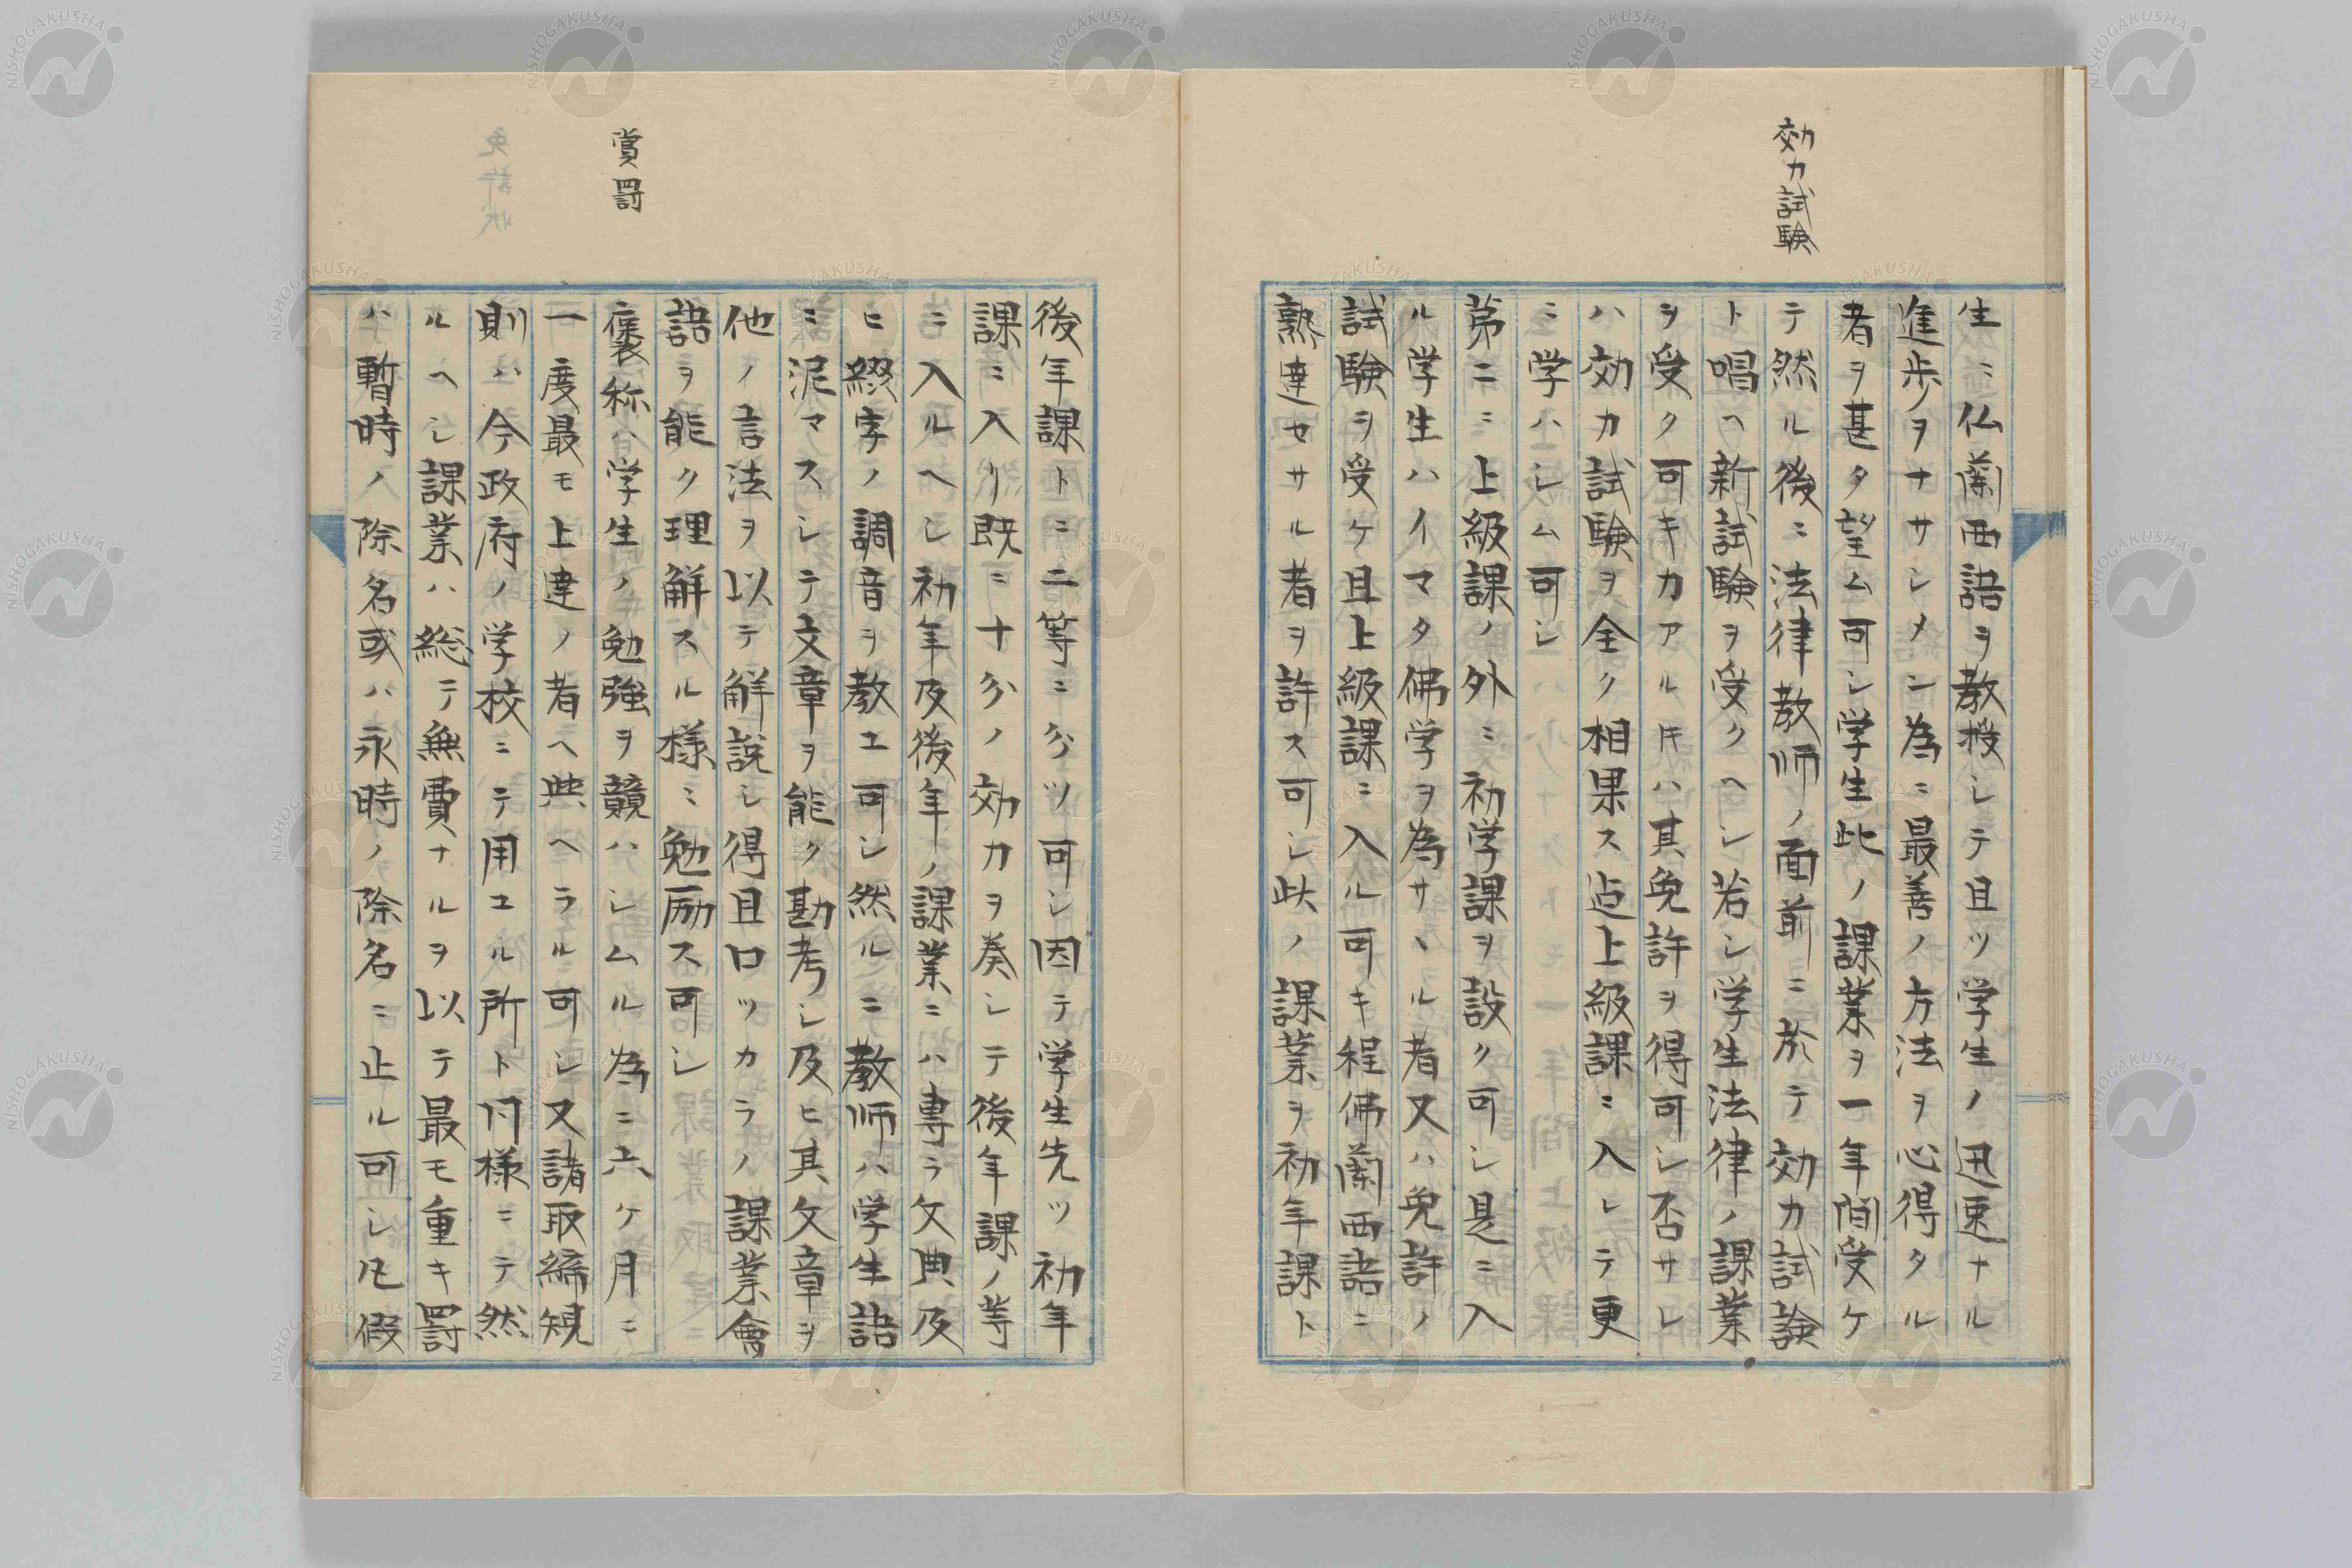 効力試験
生ニ仏蘭西語ヲ教授シテ且ツ学生ノ迅速ナル
進歩ヲナサシメン為ニ最善ノ方法ヲ心得タル
者ヲ甚タ望ム可シ学生此ノ課業ヲ一年間受ケ
テ然ル後ニ法律教師ノ面前ニ於テ効力試験
ト唱ヘ新試験ヲ受クヘシ若シ学生法律ノ課業
ヲ受ク可キカアル𪜈ハ其免許ヲ得可シ否サレ
ハ効力試験ヲ全ク相果ス迠上級課ニ入レテ更
ニ学ハシム可シ
第二ニ上級課ノ外ニ初学課ヲ設ク可シ是ニ入
ル学生ハイマタ佛学ヲ為サヽル者又ハ免許ノ
試験ヲ受ケ且上級課ニ入ル可キ程佛蘭西語ニ
熟達セサル者ヲ許ス可シ此ノ課業ヲ初年課ト
賞罰
後年課トニ二等ニ分ツ可シ因テ学生先ツ初年
課ニ入リ既ニ十分ノ効力ヲ奏シテ後年課ノ等
ニ入ルヘシ初年及後年ノ課業ニハ専ラ文典及
ヒ綴字ノ調音ヲ教ユ可シ然ルニ教師ハ学生語
ニ泥マスシテ文章ヲ能ク勘考シ及ヒ其文章ヲ
他ノ言法ヲ以テ解説シ得且口ツカラノ課業會
語ヲ能ク理解スル様ニ勉励ス可シ
褒称ハ学生ノ勉強ヲ競ハシムル為ニ六ケ月ニ
一度最モ上達ノ者ヘ典ヘラル可シ又諸取締規
則ハ今政府ノ学校ニテ用ユル所ト同様ニテ然
ルヘシ課業ハ総テ無費ナルヲ以テ最モ重キ罰
ハ暫時ノ除名或ハ永時ノ除名ニ止ル可シ凡假
NISHOGAKUSHA